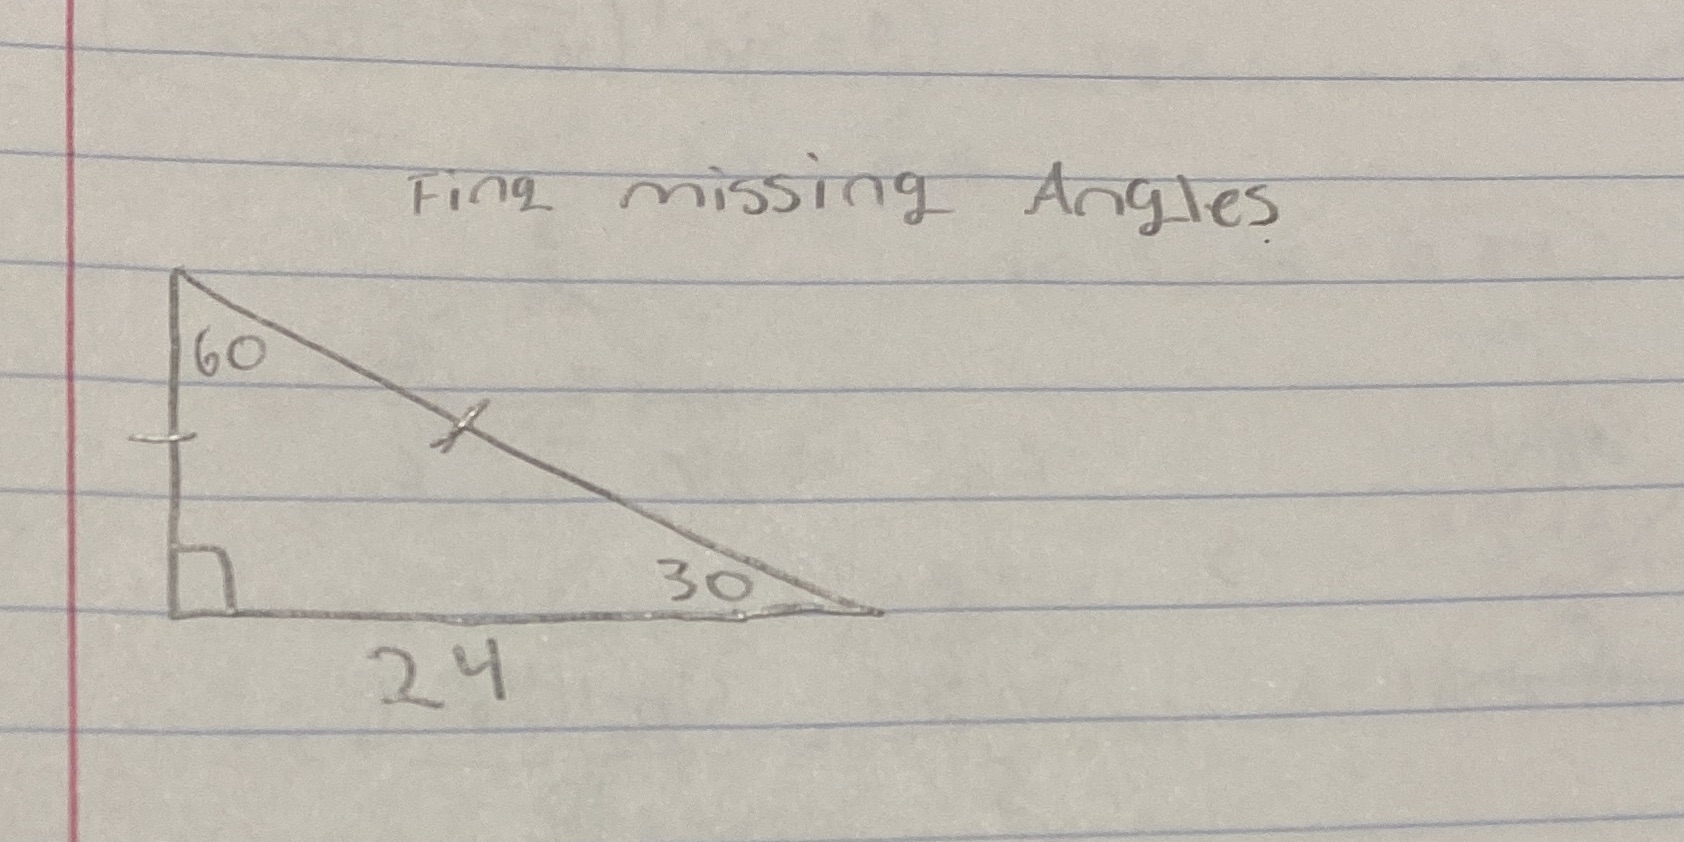 Find missing Angles.
60
30
24